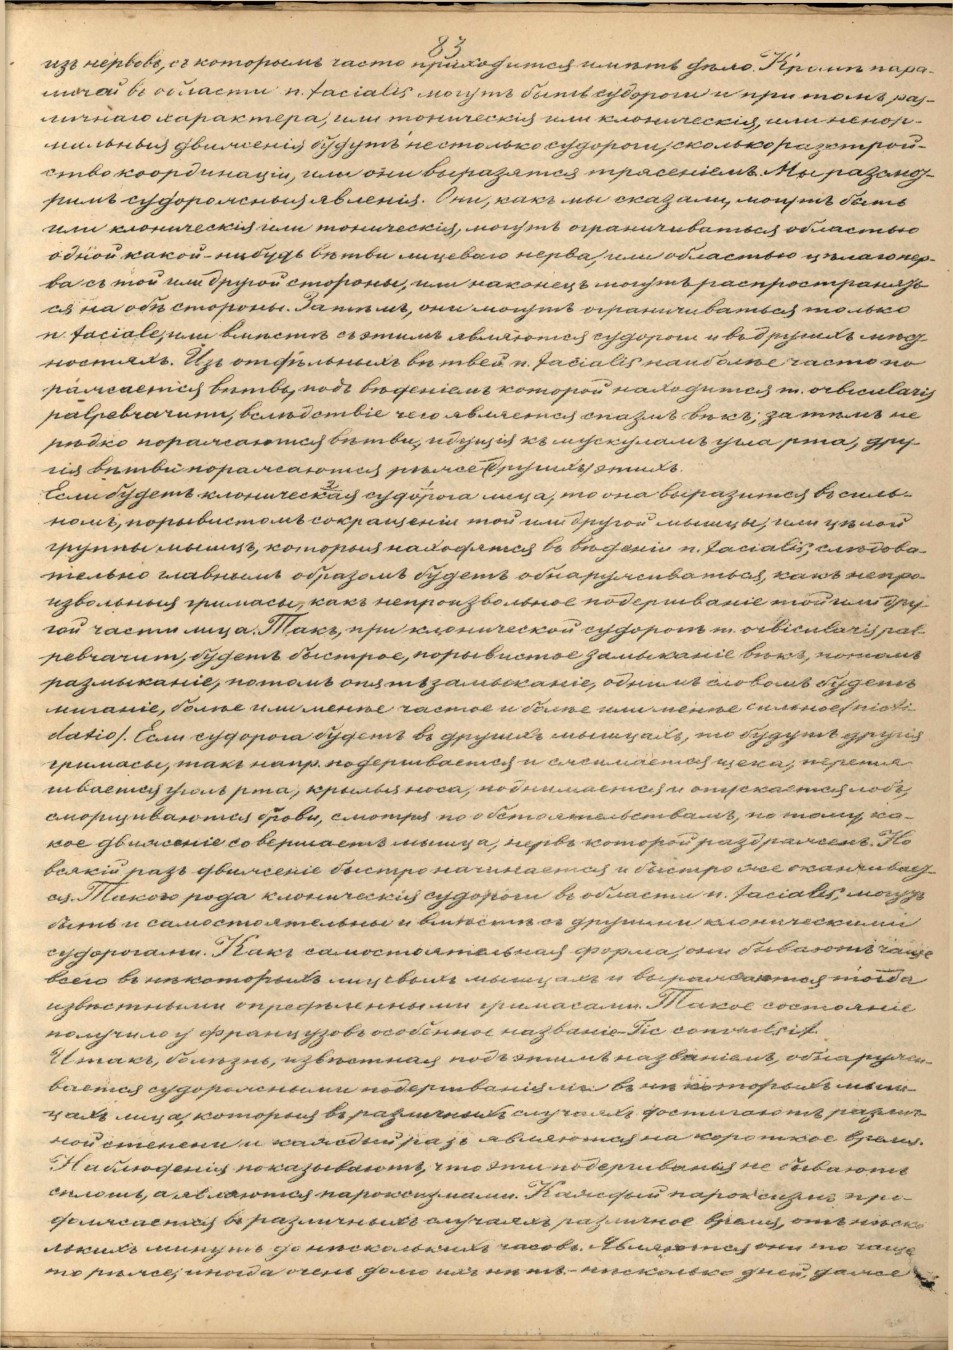 83
изъ нервовъ, съ которымъ часто приходится имѣть дѣло. Кромѣ пара-
личей въ области n. facialis могутъ быть судороги и при томъ раз-
личнаго характера, или тоническія или клоническія, или ненор-
мальныя движенія будутъ нестолько судороги, сколько разстрой-
ство координаціи, или они выразятся трясеніемъ. Мы разсмот-
римъ судорожныя явленія. Они, какъ мы сказали, могутъ быть
или клоническія или тоническія, могутъ ограничиваться областью
одной какой-нибудь вѣтви лицеваго нерва, или областью цѣлаго нер-
ва съ той или другой стороны, или наконецъ могутъ распространять
ся на обѣ стороны. Затѣмъ, они могутъ ограничиваться только
n. faciale, или вмѣстѣ съ этимъ являются судороги и въ другихъ мѣст
ностяхъ. Изъ отдѣльныхъ вѣтвей n. facialis наиболѣе часто по
ражается вѣтвь, подъ вѣденіемъ которой находится m. orbicularis
palpebrarum, вслѣдствіе чего является спазмъ вѣкъ; затѣмъ не
рѣдко поражаются вѣтви, идущія къ мускуламъ угла рта, дру-
гія вѣтви поражаются рѣже другихъ этихъ.
Если будетъ клоническая судорога лица, то она выразится въ силь-
номъ, порывистомъ сокращеніи той или другой мышцы, или цѣлой
группы мышцъ, которыя находятся въ вѣденіи n. facialis, слѣдова-
тельно главнымъ образомъ будетъ обнаруживаться, какъ непро-
извольныя гримасы, какъ непроизвольное подергиваніе той или дру-
гой части лица. Такъ, при клонической судорогѣ m. orbicularis pal-
pebrarum, будетъ быстрое, порывистое замыканіе вѣкъ, потомъ
размыканіе, потомъ опять замыканіе, однимъ словомъ будетъ
миганіе, болѣе или менѣе частое и болѣе или менѣе сильное (nicti-
tatio). Если судорога будетъ въ другихъ мышцахъ, то будутъ другія
гримасы, такъ напр. подергивается и сжимается щека, перетя
гивается уголъ рта, крылья носа, поднимается и опускается лобъ,
сморщиваются брови, смотря по обстоятельствамъ, по тому ка-
кое движеніе совершаетъ мышца, нервъ которой раздраженъ. Но
всякій разъ движеніе быстро начинается и быстро же оканчивает-
ся. Такого рода клоническія судороги въ области n. facialis, могутъ
быть и самостоятельны и вмѣстѣ съ другими клоническими
судорогами. Какъ самостоятельная форма, они бываютъ чаще
всего въ нѣкоторыхъ лицевыхъ мышцахъ и выражаются тогда
извѣстными опредѣленными гримасами. Такое состояніе
получило у французовъ особенное названіе Tic convulsif.
И такъ, болѣзнь, извѣстная подъ этимъ названіемъ, обнаружи-
вается судорожными подергиваніями въ нѣкоторыхъ мыш-
цахъ лица, которыя въ различныхъ случаяхъ достигаютъ различ-
ной степени и каждый разъ являются на короткое время.
Наблюденія показываютъ, что эти подергиванья не бываютъ
сплошь, а являются пароксизмами. Каждый пароксизмъ про-
должается въ различныхъ случаяхъ различное время, отъ нѣско
лькихъ минутъ до нѣсколькихъ часовъ. Являются они то чаще
то рѣже, иногда очень долго ихъ нѣтъ - нѣсколько дней, даже